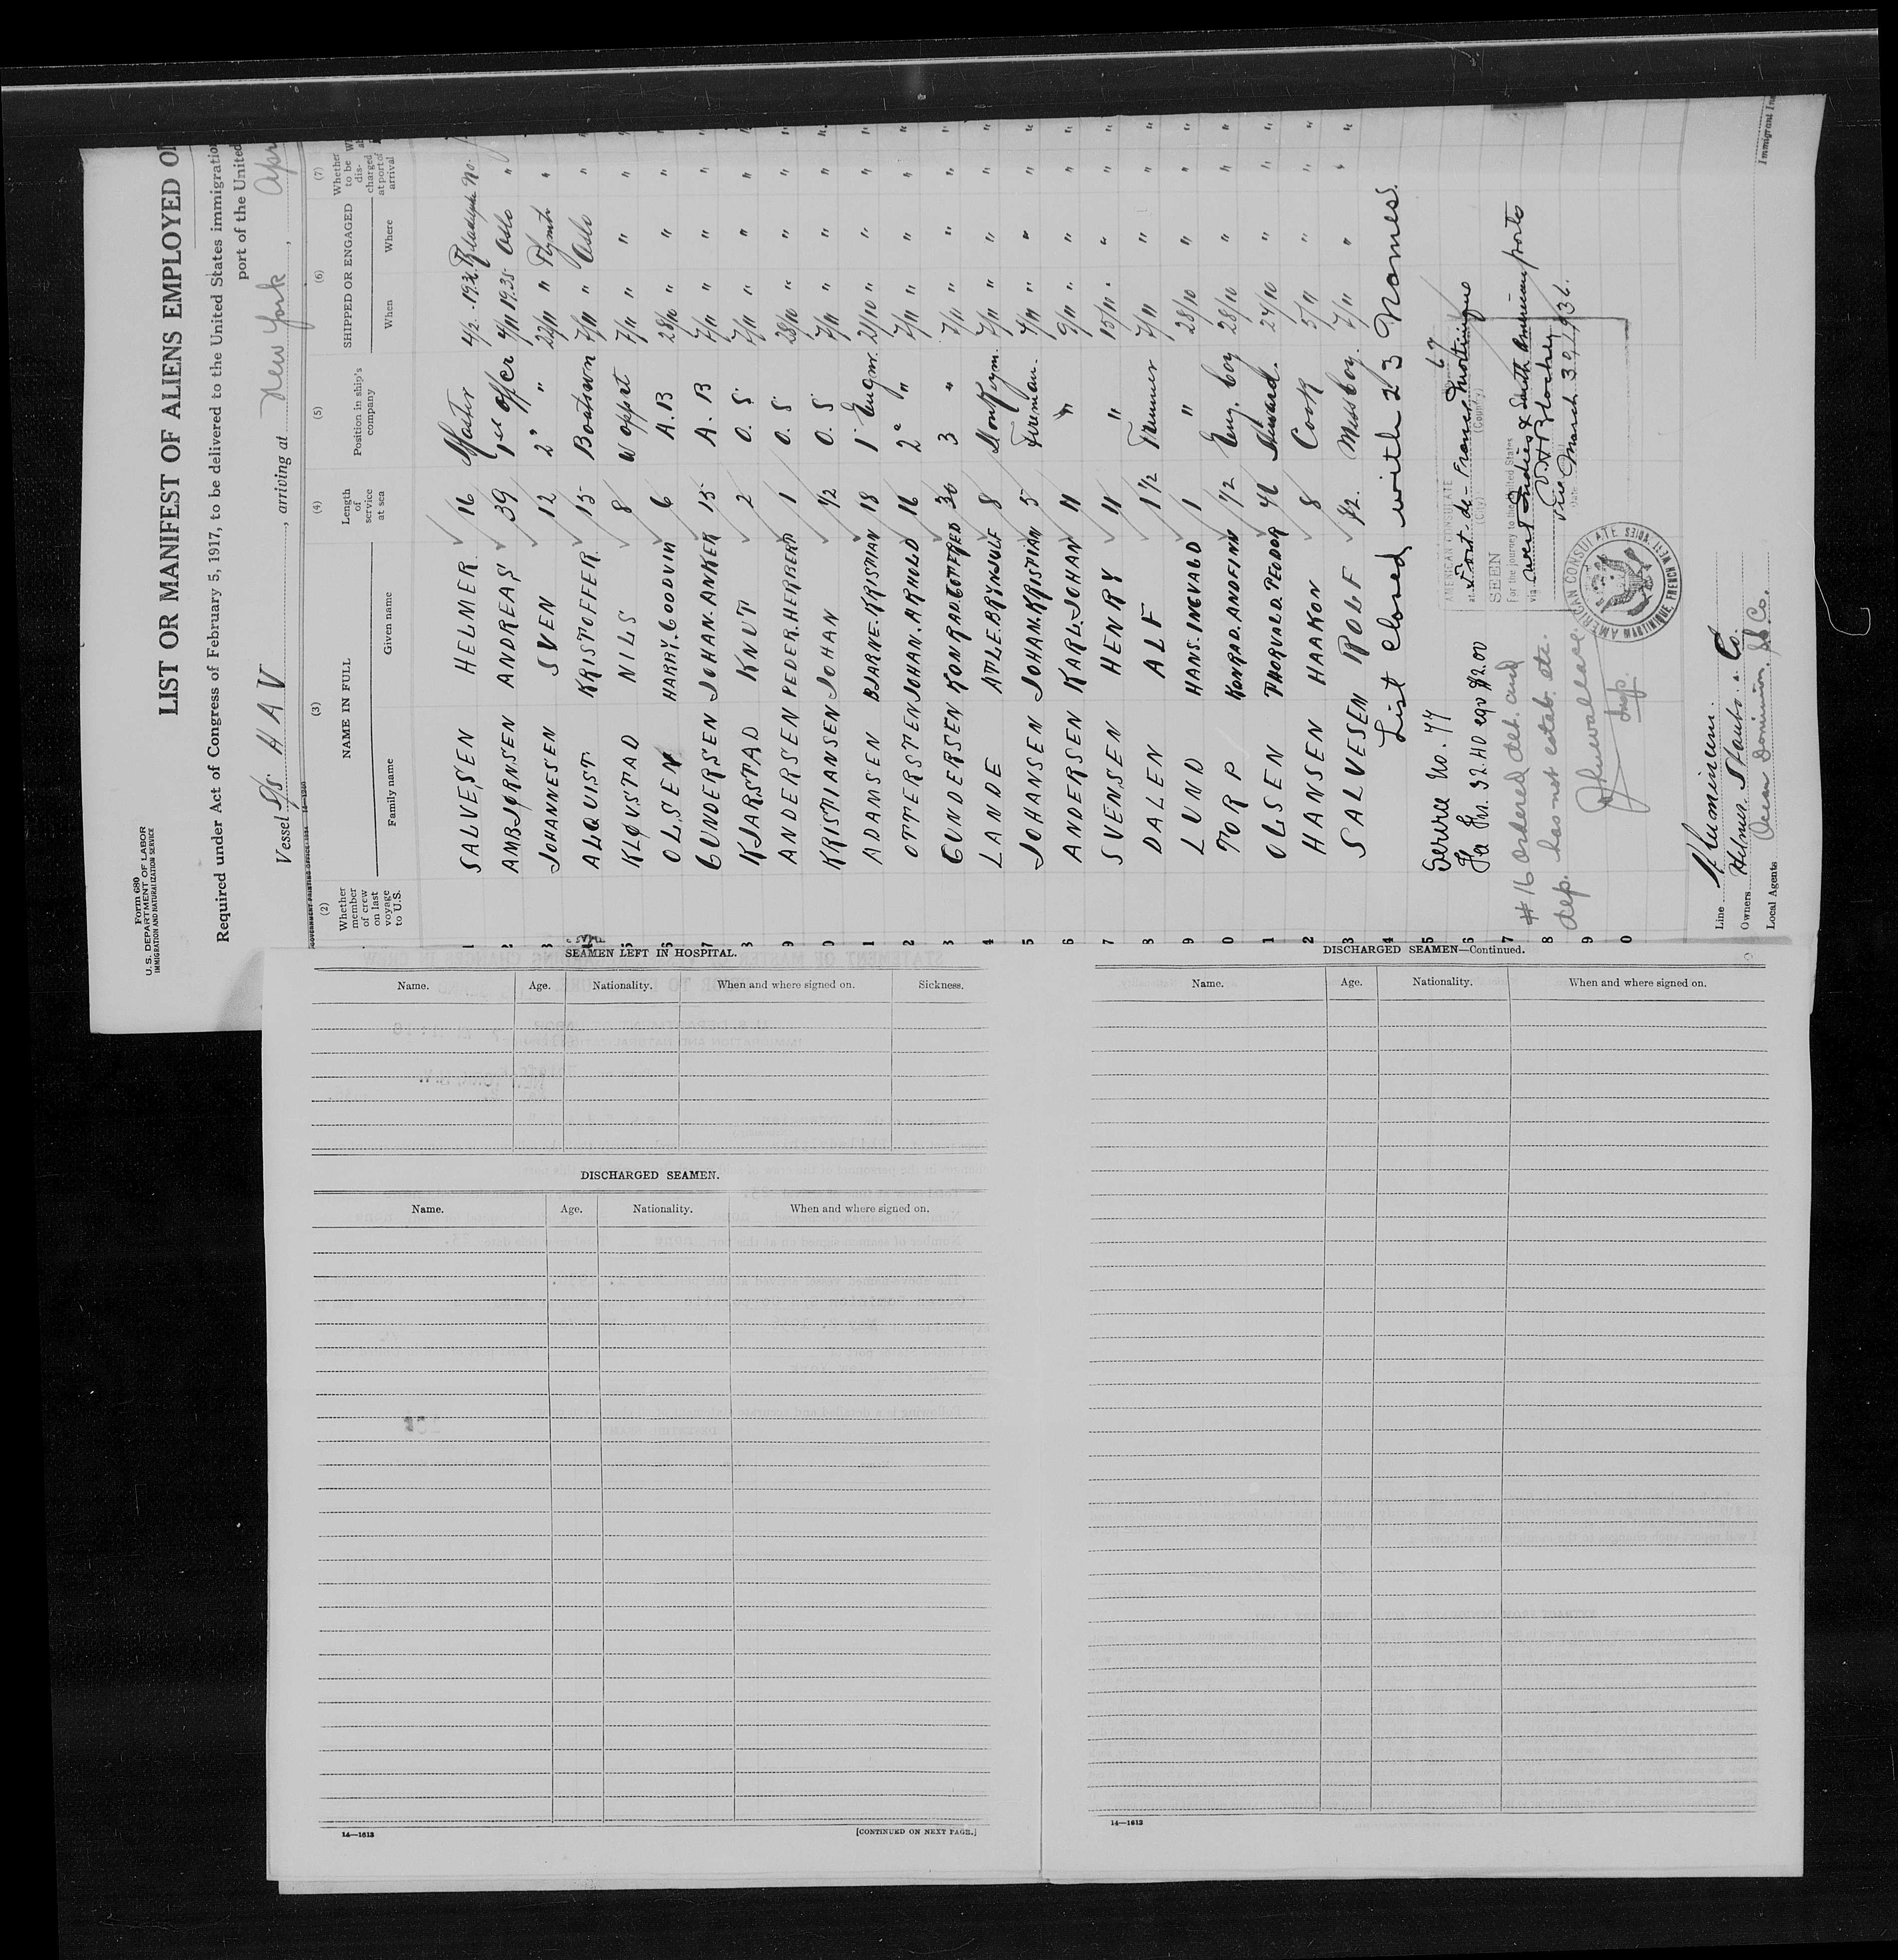 Form 680
U.S. DEPARTMENT OF LABOR
IMMIGRATION AND NATURALIZATION SERVICE
LIST OR MANIFEST OF ALIENS EMPLOYED ON
Required under Act of Congress of February 5, 1917, to be delivered to the United States immigration
port of the United
Vessel S/s. HAV, arriving at New York, Apr
(2) (3) (4) (5) (6) (7)
Whether member of crew on last voyage to U.S.
NAME IN FULL
Family name Given name
Length of service at sea
Position in ship's company
SHIPPED OR ENGAGED
When Where
Whether to be discharged at port of arrival
1 SALVESEN HELMER 16 Master 4/2. 1936. No.
2 AMBJØRNSEN ANDREAS 39 1st offcr 4/11 1935 Oslo "
3 JOHANNESEN SVEN 12 2" " 22/11 " "
4 ALQUIST KRISTOFFER 15 Boatswn 7/11 " Oslo "
5 KLØVSTAD NILS 8 7/11 " " "
6 OLSEN HARRY. GOODVIN 6 A. B 28/10 " " "
7 GUNDERSEN JOHAN. ANKER 15 A. B 7/11 " " "
8 KJARSTAD KNUT 2 O. S 7/11 " " "
9 ANDERSEN PEDER. HERBERT 1 O. S 28/10 " " "
0 KRISTIANSEN JOHAN 1/2 O. S 7/11 " " "
1 ADAMSEN BJARNE. KRISTIAN 18 1 Engnr. 21/10 " " "
2 OTTERSTEN JOHAN. ARHULD 16 2" " 7/11 " " "
3 GUNDERSEN KONRAD. GOTTFRED 30 3 " 7/11 " " "
4 LANDE ATLE. BRYNJULF 8 Donkeym. 7/11 " " "
5 JOHANSEN JOHAN. KRISTIAN 5 Fireman. 4/11 " " "
6 ANDERSEN KARL. JOHAN 11 " 9/11 " " "
7 SVENSEN HENRY 11 " 15/11 " " "
8 DALEN ALF 1 1/2 Trimmer 7/11 " "
9 LUND HANS. INGVALD 1 " 28/10 " "
0 TORP KONRAD. ANDFINN 1/2 Eng. boy 28/10 " "
1 OLSEN THORVALD. PEDOR 46 Steward. 24/10 " "
2 HANSEN HAAKON 8 Cook 5/11 " "
3 SALVESEN ROLF 1/2. Messboy. 7/11 " "
4 List closed with 23 Names.
5
6
7
8
9
0
Service No. 77
Fa Frs. 32.40 eqv $2.00
# 16 ordered det. and
dep. has not estab. etc.
Insp.
67
AMERICAN CONSULATE
at Fort-de-France Martinique
(City) (County)
SEEN
For the journey to the United States
via West Indies & South American ports
Vice
Date March 30, 1936.
AMERICAN CONSULATE
MARTINIQUE, FRENCH WEST INDIES
Line
Owners Helmer Staubo & Co.
Local Agents Ocean Dominion. SS. Co.
Immigrant In
SEAMEN LEFT IN HOSPITAL.
Name. Age. Nationality. When and where signed on. Sickness.
DISCHARGED SEAMEN.
Name. Age. Nationality. When and where signed on.
14—1613
[CONTINUED ON NEXT PAGE.]
DISCHARGED SEAMEN—Continued.
Name. Age. Nationality. When and where signed on.
14—1613